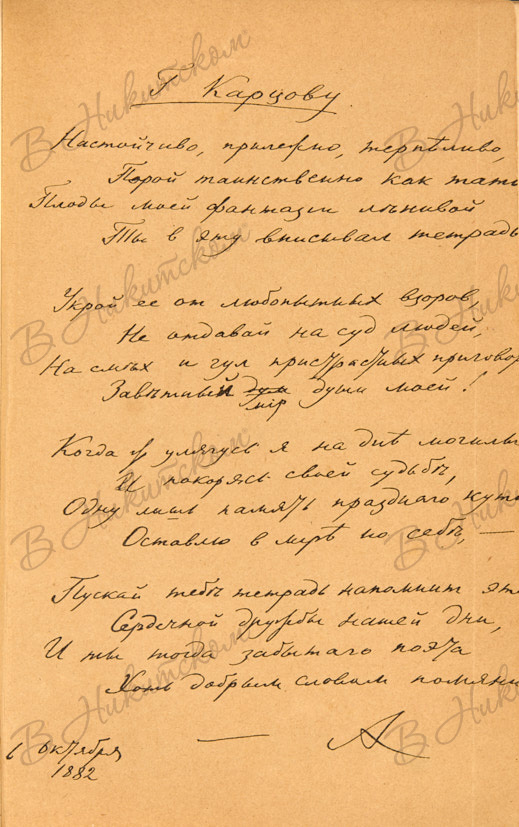 Г Карцову
Настойчиво, прилежно, терпѣливо,
Порой таинственно как тать
Плоды моей фантазіи лѣнивой
Ты в эту вписывал тетрадь
Укрой ее от любопытных взоров,
Не отдавай на суд людей,
На смѣх и гул пристрастных приговор
Завѣтный мір души моей!
Когда улягусь я на днѣ могилы
И покорясь своей судьбѣ,
Одну лишь память празднаго кути
Оставлю в мірѣ по себѣ, —
Пускай тебѣ тетрадь напомнит эта
Сердечной дружбы нашей дни,
И ты тогда забытаго поэта
Хоть добрым словом помяни
А
6 октября
1882
В Никитском
В Никитском
В Никитском
В Никитском